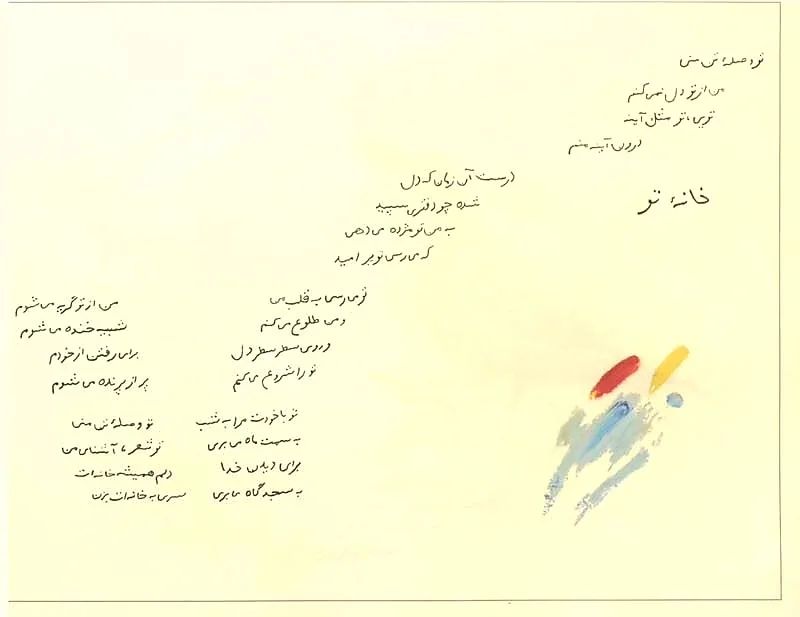 تو وصلهٔ تن منی
من از تو دل نمی‌کنم
تویی، تو مثل آینه
درون آینه منم
خانهٔ تو
درست آن زمان که دل
شده چو دفتری سپید
به من تو مژده می‌دهی
که می‌رسی تو بر امید
تو می‌رسی به قلب من
و من طلوع می‌کنم
و روی سطر سطر دل
تو را شروع می‌کنم
من از تو گریه می‌شوم
شبیه خنده می‌شوم
برای رفتن از خودم
پر از پرنده می‌شوم
تو با خودت مرا به شب
به سمت ماه می‌بری
برای دیدن خدا
به سجدگاه می‌بری
تو وصلهٔ تن منی
تو شعر، آشنای من
دلم همیشه خانه‌ات
سری به خانه‌ات بزن